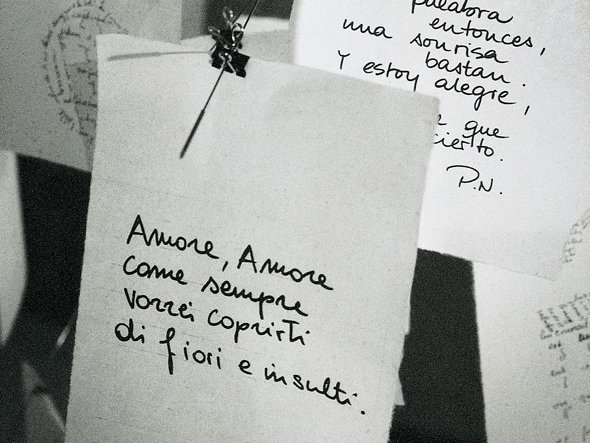 palabra
entonces,
una sonrisa
bastan.
Y estoy alegre,
que
cierto.
P.N.
Amore, Amore
come sempre
vorrei coprirti
di fiori e insulti.